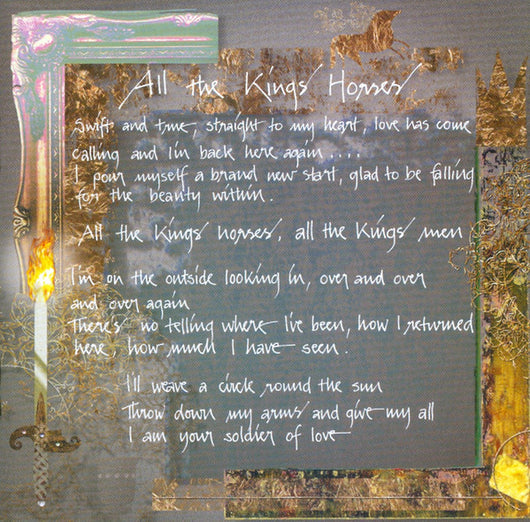 All the Kings' Horses
Swift and true, straight to my heart, love has come
calling and I'in back here again....
I pour myself a brand new start, glad to be falling
for the beauty within.
All the Kings' horses, all the Kings' men
I'm on the outside looking in, over and over
and over again
There's no telling where I've been, how I returned
here, how much I have seen.
I'll weave a circle round the sun
Throw down my arms and give my all
I am your soldier of love